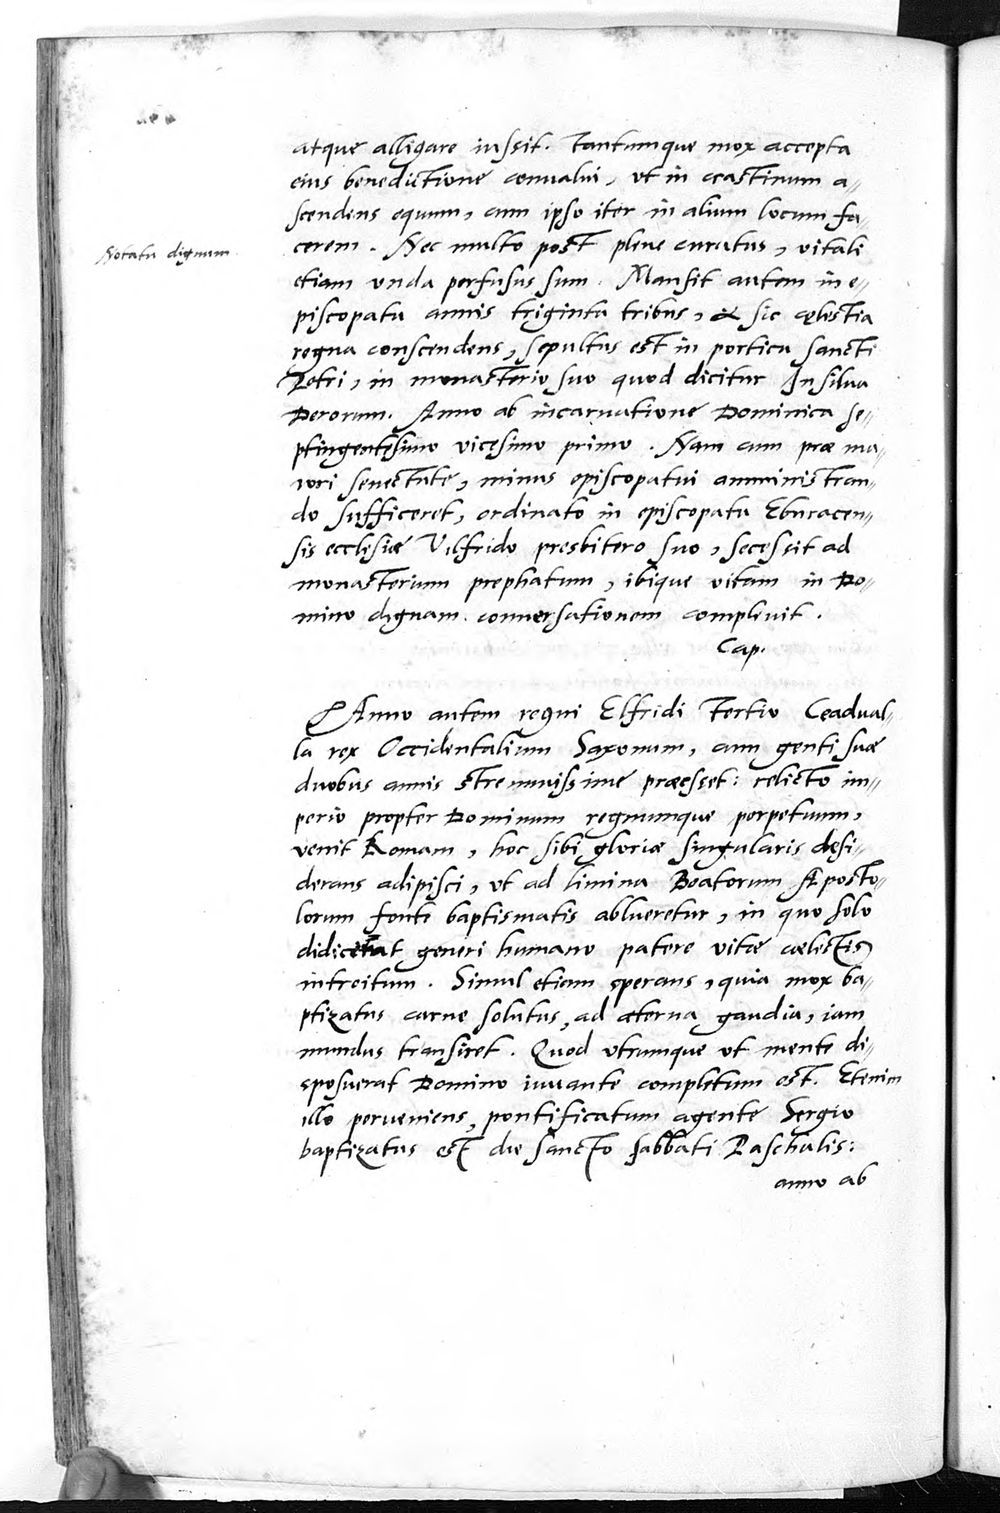 atque alligare iussit. Tantumque mox accepta
eius benedictione conualui, vt in crastinum a-
scendens equum, cum ipso iter in alium locum fa-
cerem. Nec multo post plene curatus, vitali
Notatu dignum
etiam vnda perfusus sum. Mansit autem in e-
piscopatu annis triginta tribus, & sic cęlestia
regna conscendens, sepultus est in porticu sancti
Petri, in monasterio suo quod dicitur In silua
Derorum. Anno ab incarnatione Dominica se-
ptingentesimo vicesimo primo. Nam cum præ ma-
iori senectute, minus episcopatui amministran-
do sufficeret, ordinato in episcopatu Eburacen-
sis ecclesiæ Vilfrido presbitero suo, secessit ad
monasterium prephatum, ibique vitam in Do-
mino dignam conuersationem compleuit.
Cap.
Anno autem regni Elfridi Tertio Ceadual-
la rex Occidentalium Saxonum, cum genti suæ
duobus annis strenuissime præesset: relicto im-
perio propter Dominum regnumque perpetuum,
venit Romam, hoc sibi gloriæ singularis desi-
derans adipisci, vt ad limina Beatorum Aposto-
lorum fonte baptismatis ablueretur, in quo solo
didicerat generi humano patere vitæ cælestis
introitum. Simul etiam sperans, quia mox ba-
ptizatus carne solutus, ad æterna gaudia, iam
mundus transiret. Quod vtrumque vt mente di-
sposuerat Domino iuuante completum est. Etenim
illo perueniens, pontificatum agente Sergio
baptizatus est die sancto sabbati Paschalis:
anno ab